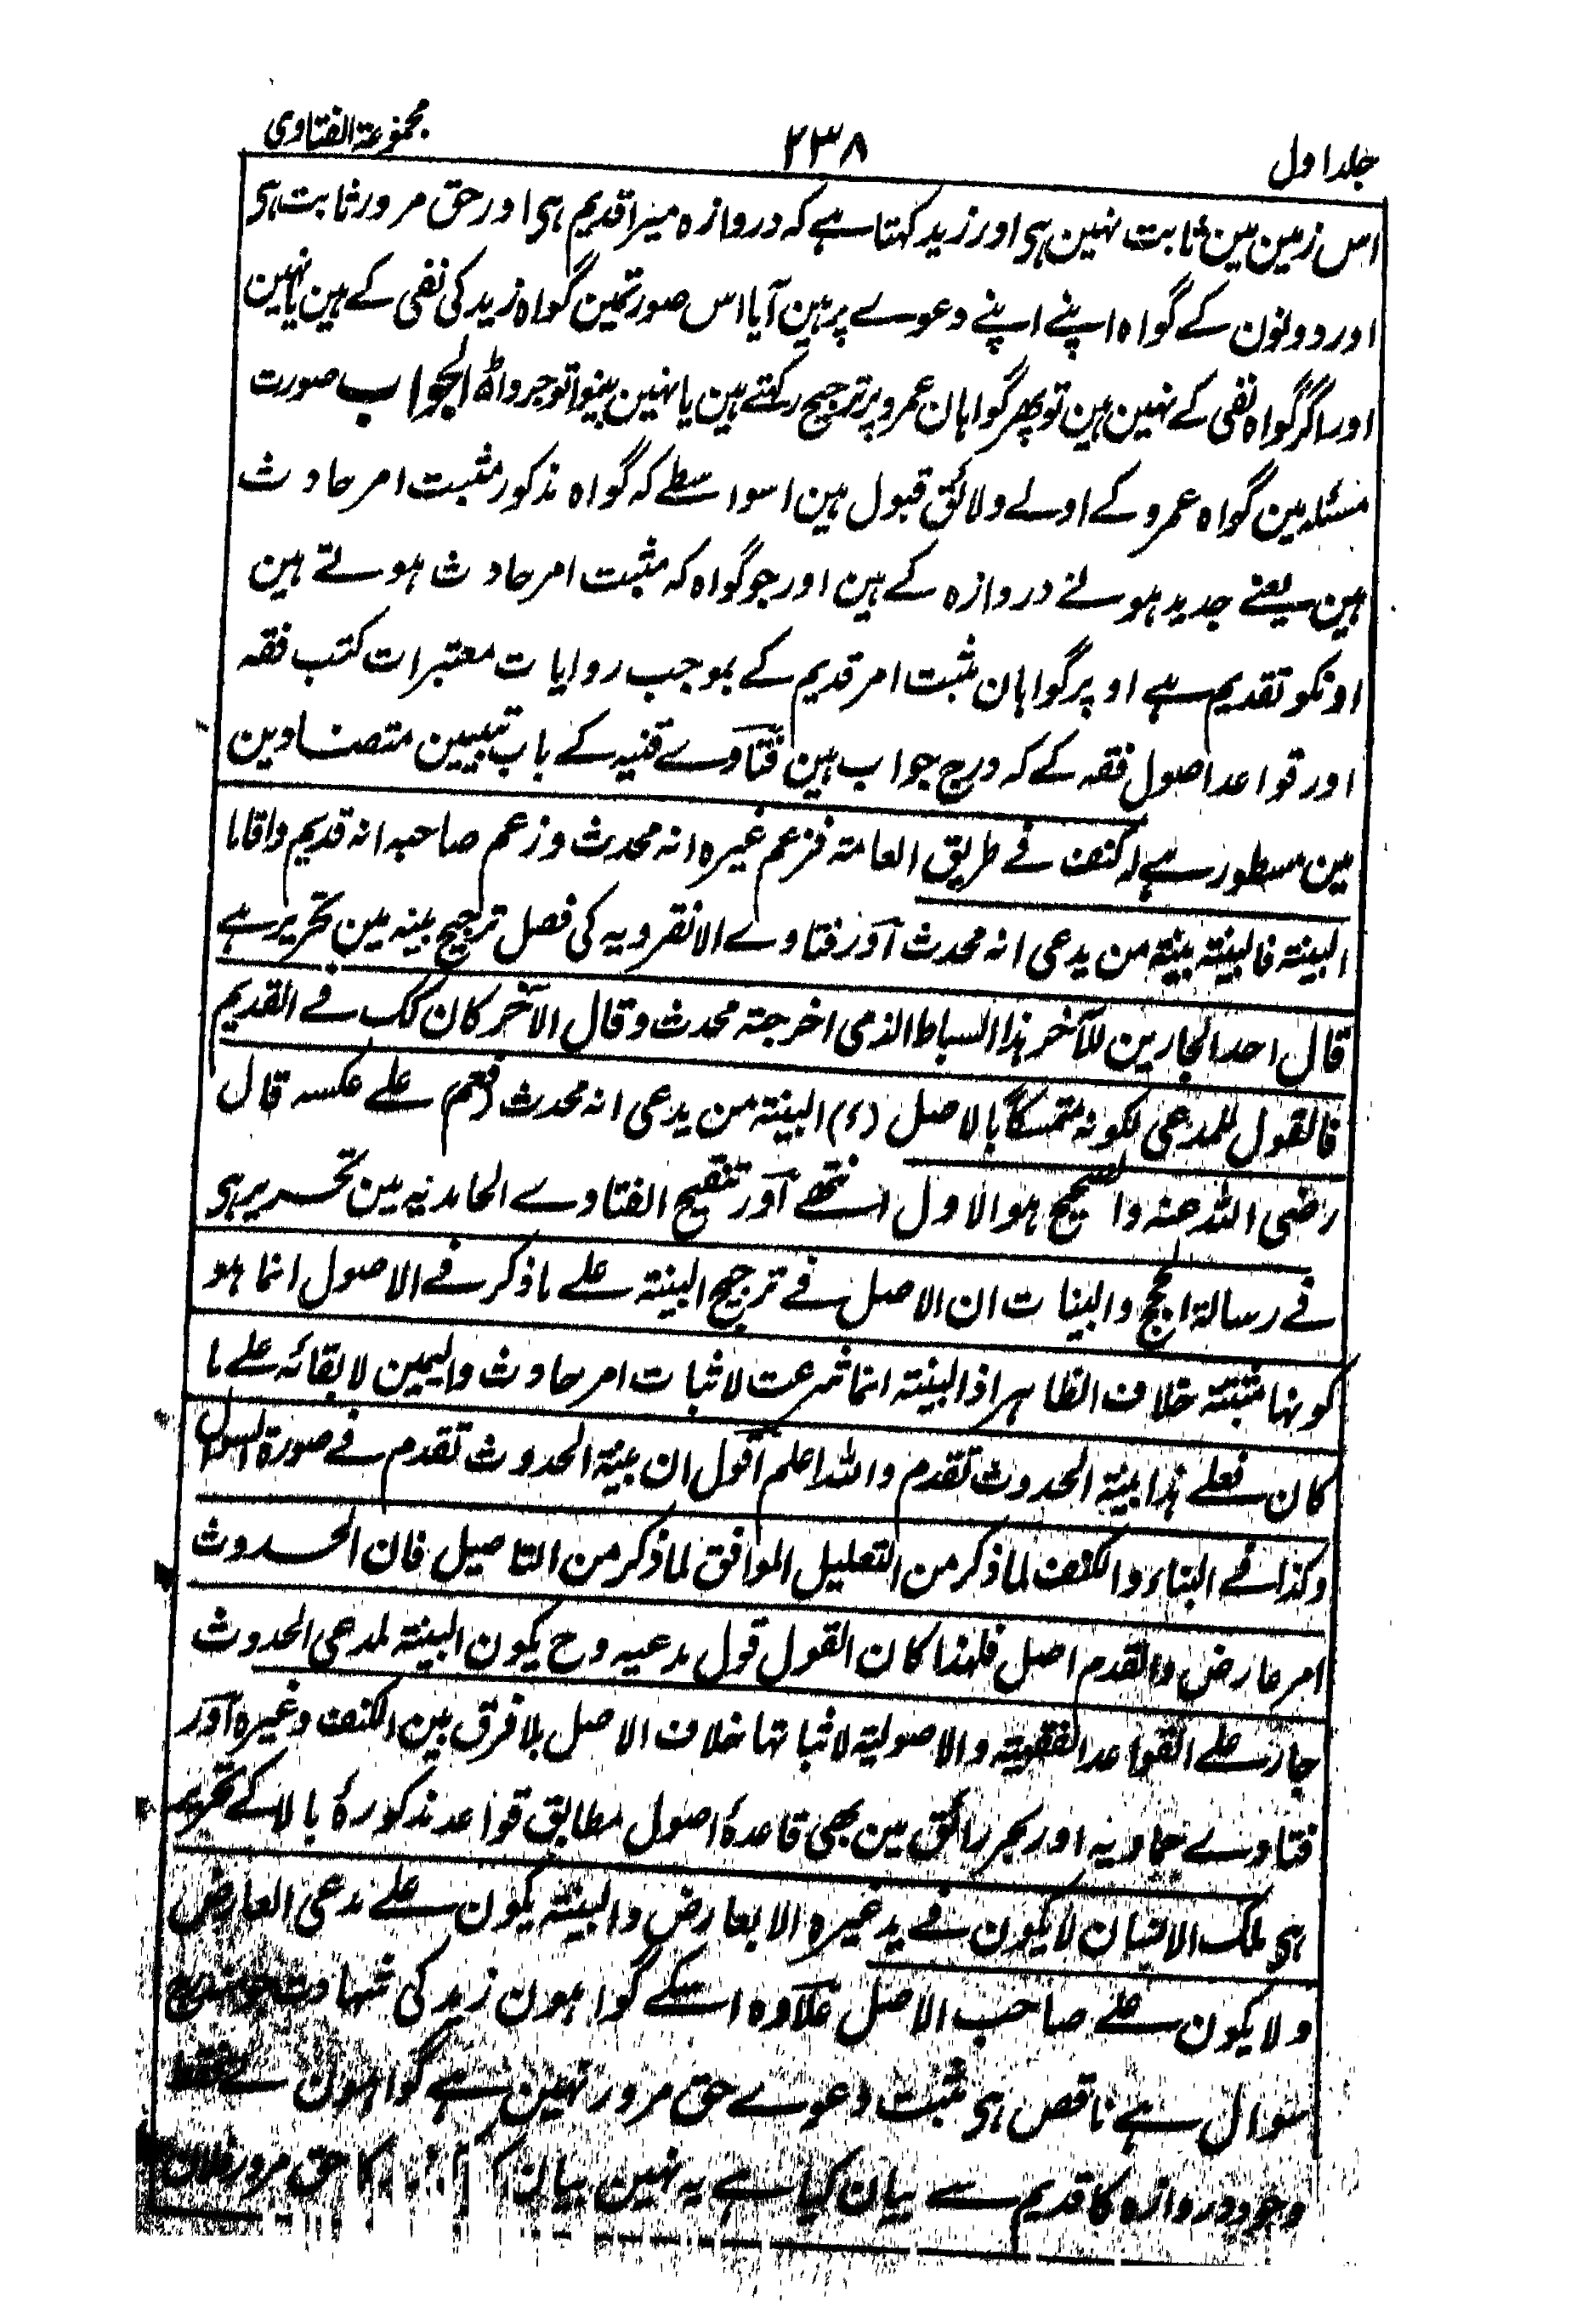 جلد اول
۲۳۸
مجموعۃ الفتاوی
اس زمین مین ثابت نہین ہی اور زید کہتا ہے کہ دروازہ میرا قدیم ہی اور حق مرور ثابت ہی
اور دونون کے گواہ اپنے اپنے دعوے پر ہین آیا اس صورتمین گواہ زید کی نفی کے ہین یا نہین
اور اگر گواہ نفی کے نہین ہین تو پھر گواہان عمرو پر ترجیح رکھتے ہین یا نہین بینوا توجروا الجواب صورت
مسئلہ مین گواہ عمرو کے اولے ولائق قبول ہین اسواسطے کہ گواہ مذکور مثبت امر حادث
ہین یعنے جدید ہونے دروازہ کے ہین اور جو گواہ کہ مثبت امر حادث ہوتے ہین
اونکو تقدیم ہے اوپر گواہان مثبت امر قدیم کے بموجب روایات معتبرات کتب فقہ
اور قواعد اصول فقہ کے کہ درج جواب ہین فتاوے قنیہ کے باب تبیین متضادین
مین مسطور ہے لہ کنف فے طریق العامۃ فزعم غیرہ انہ محدث وزعم صاحبہ انہ قدیم واقاما
البینۃ فالبینۃ بینۃ من یدعی انہ محدث اور فتاوے الانقرویہ کی فصل ترجیح بینہ مین تحریر ہے
قال احد الجارین للآخر ہذا الساباط الذی اخرجتہ محدث وقال الآخر کان کک فے القدیم
فالقول للمدعی لکونہ متمسکاً بالاصل (ء) البینۃ من یدعی انہ محدث علے عکسہ قال
رضی اللہ عنہ والصحیح ہو الاول انتہے اور تنقیح الفتاوے الحامدیہ مین تحریر ہی
فے رسالۃ الحجج والبینات ان الاصل فے ترجیح البینۃ علے ما ذکر فے الاصول انما ہو
کونہا مثبتۃ خلاف الظاہر اذ البینۃ انما شرعت لاثبات امر حادث والیمین لابقائہ علے ما
کان فعلے ہذا بینۃ الحدوث تقدم واللہ اعلم اقول ان بینۃ الحدوث تقدم فے صورۃ السوال
وکذا فے البناء والکنف لما ذکر من التعلیل الموافق لما ذکر من التاصیل فان الحدوث
امر عارض والقدم اصل فلہذا کان القول قول مدعیہ وح یکون البینۃ لمدعی الحدوث
جار علے القواعد الفقہیۃ والاصولیۃ لاثباتہا خلاف الاصل بلا فرق بین الکنف وغیرہ اور
فتاوے حمادیہ اور بحر رائق مین بھی قاعدۂ اصول مطابق قواعد مذکورۂ بالا کے تحریر
ہی ملک الانسان لا یکون فے ید غیرہ الا بعارض والبینۃ یکون علے مدعی العارض
ولا یکون علے صاحب الاصل علاوہ اسکے گواہون زید کی شہادت
سوال ہے ناقص ہی مثبت دعوے حق مرور نہین ہے گواہون نے فقط
وجود دروازہ کا قدیم سے بیان کیا ہے یہ نہین بیان کا حق مرور فلان